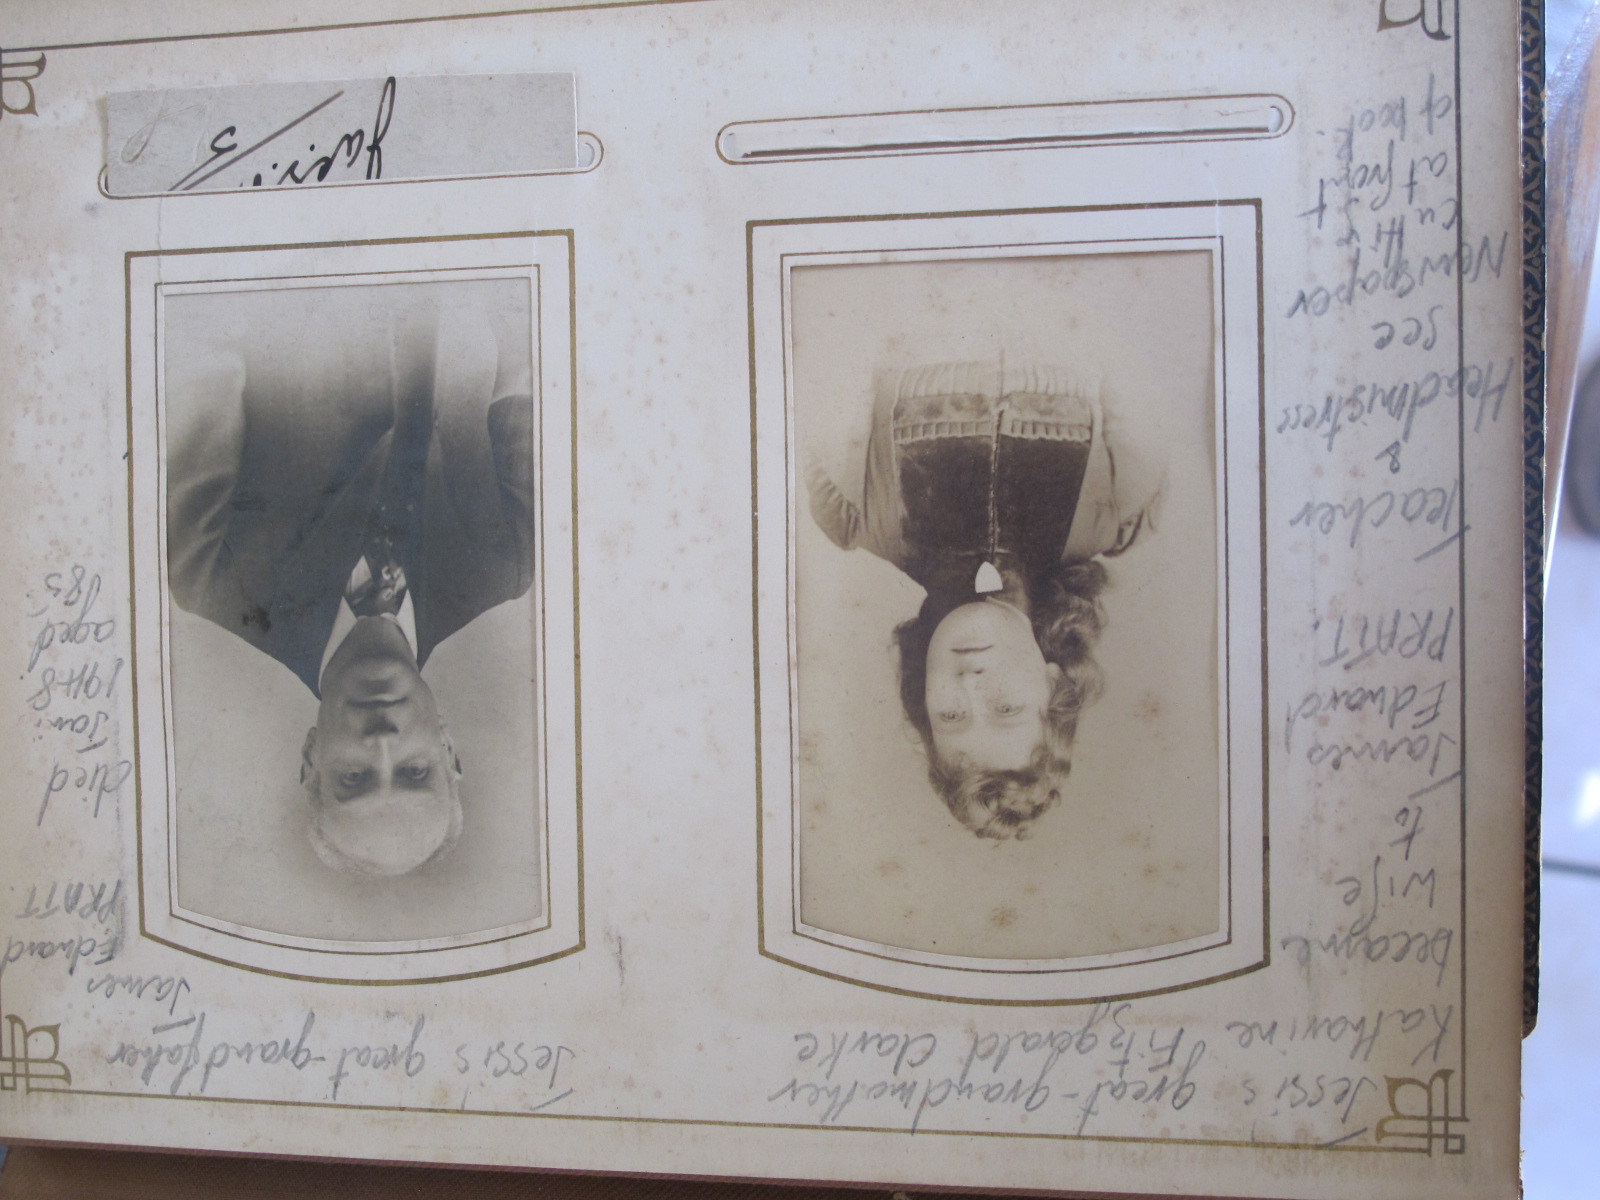 Jessi's great-grandmother
Katharine Fitzgerald Clarke
became
wife
to
James
Edward
PRATT.
Teacher
&
Headmistress
see
Newspaper
cutting
at front
of book.
Jessi's great-grandfather
James
Edward
PRATT
died
Jan:
1948
aged
85.